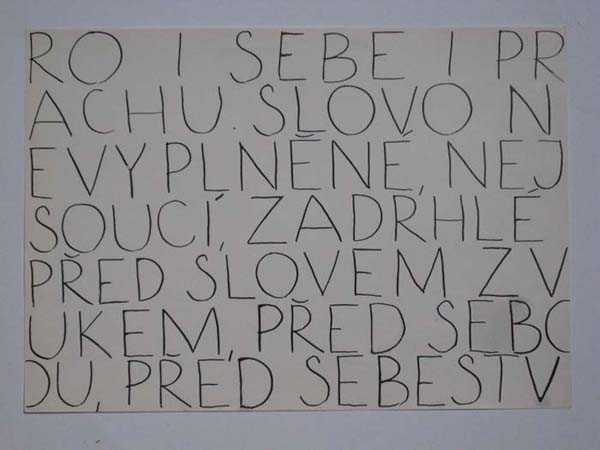 RO I SEBE I PR
ACHU. SLOVO N
EVYPLNĚNÉ, NEJ
SOUCÍ, ZADRHLÉ
PŘED SLOVEM ZV
UKEM, PŘED SEBO
OU, PŘED SEBESTV